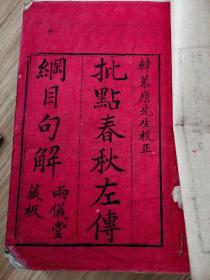 韓慕廬先生校正
批點春秋左傳
綱目句解
兩儀堂
藏板